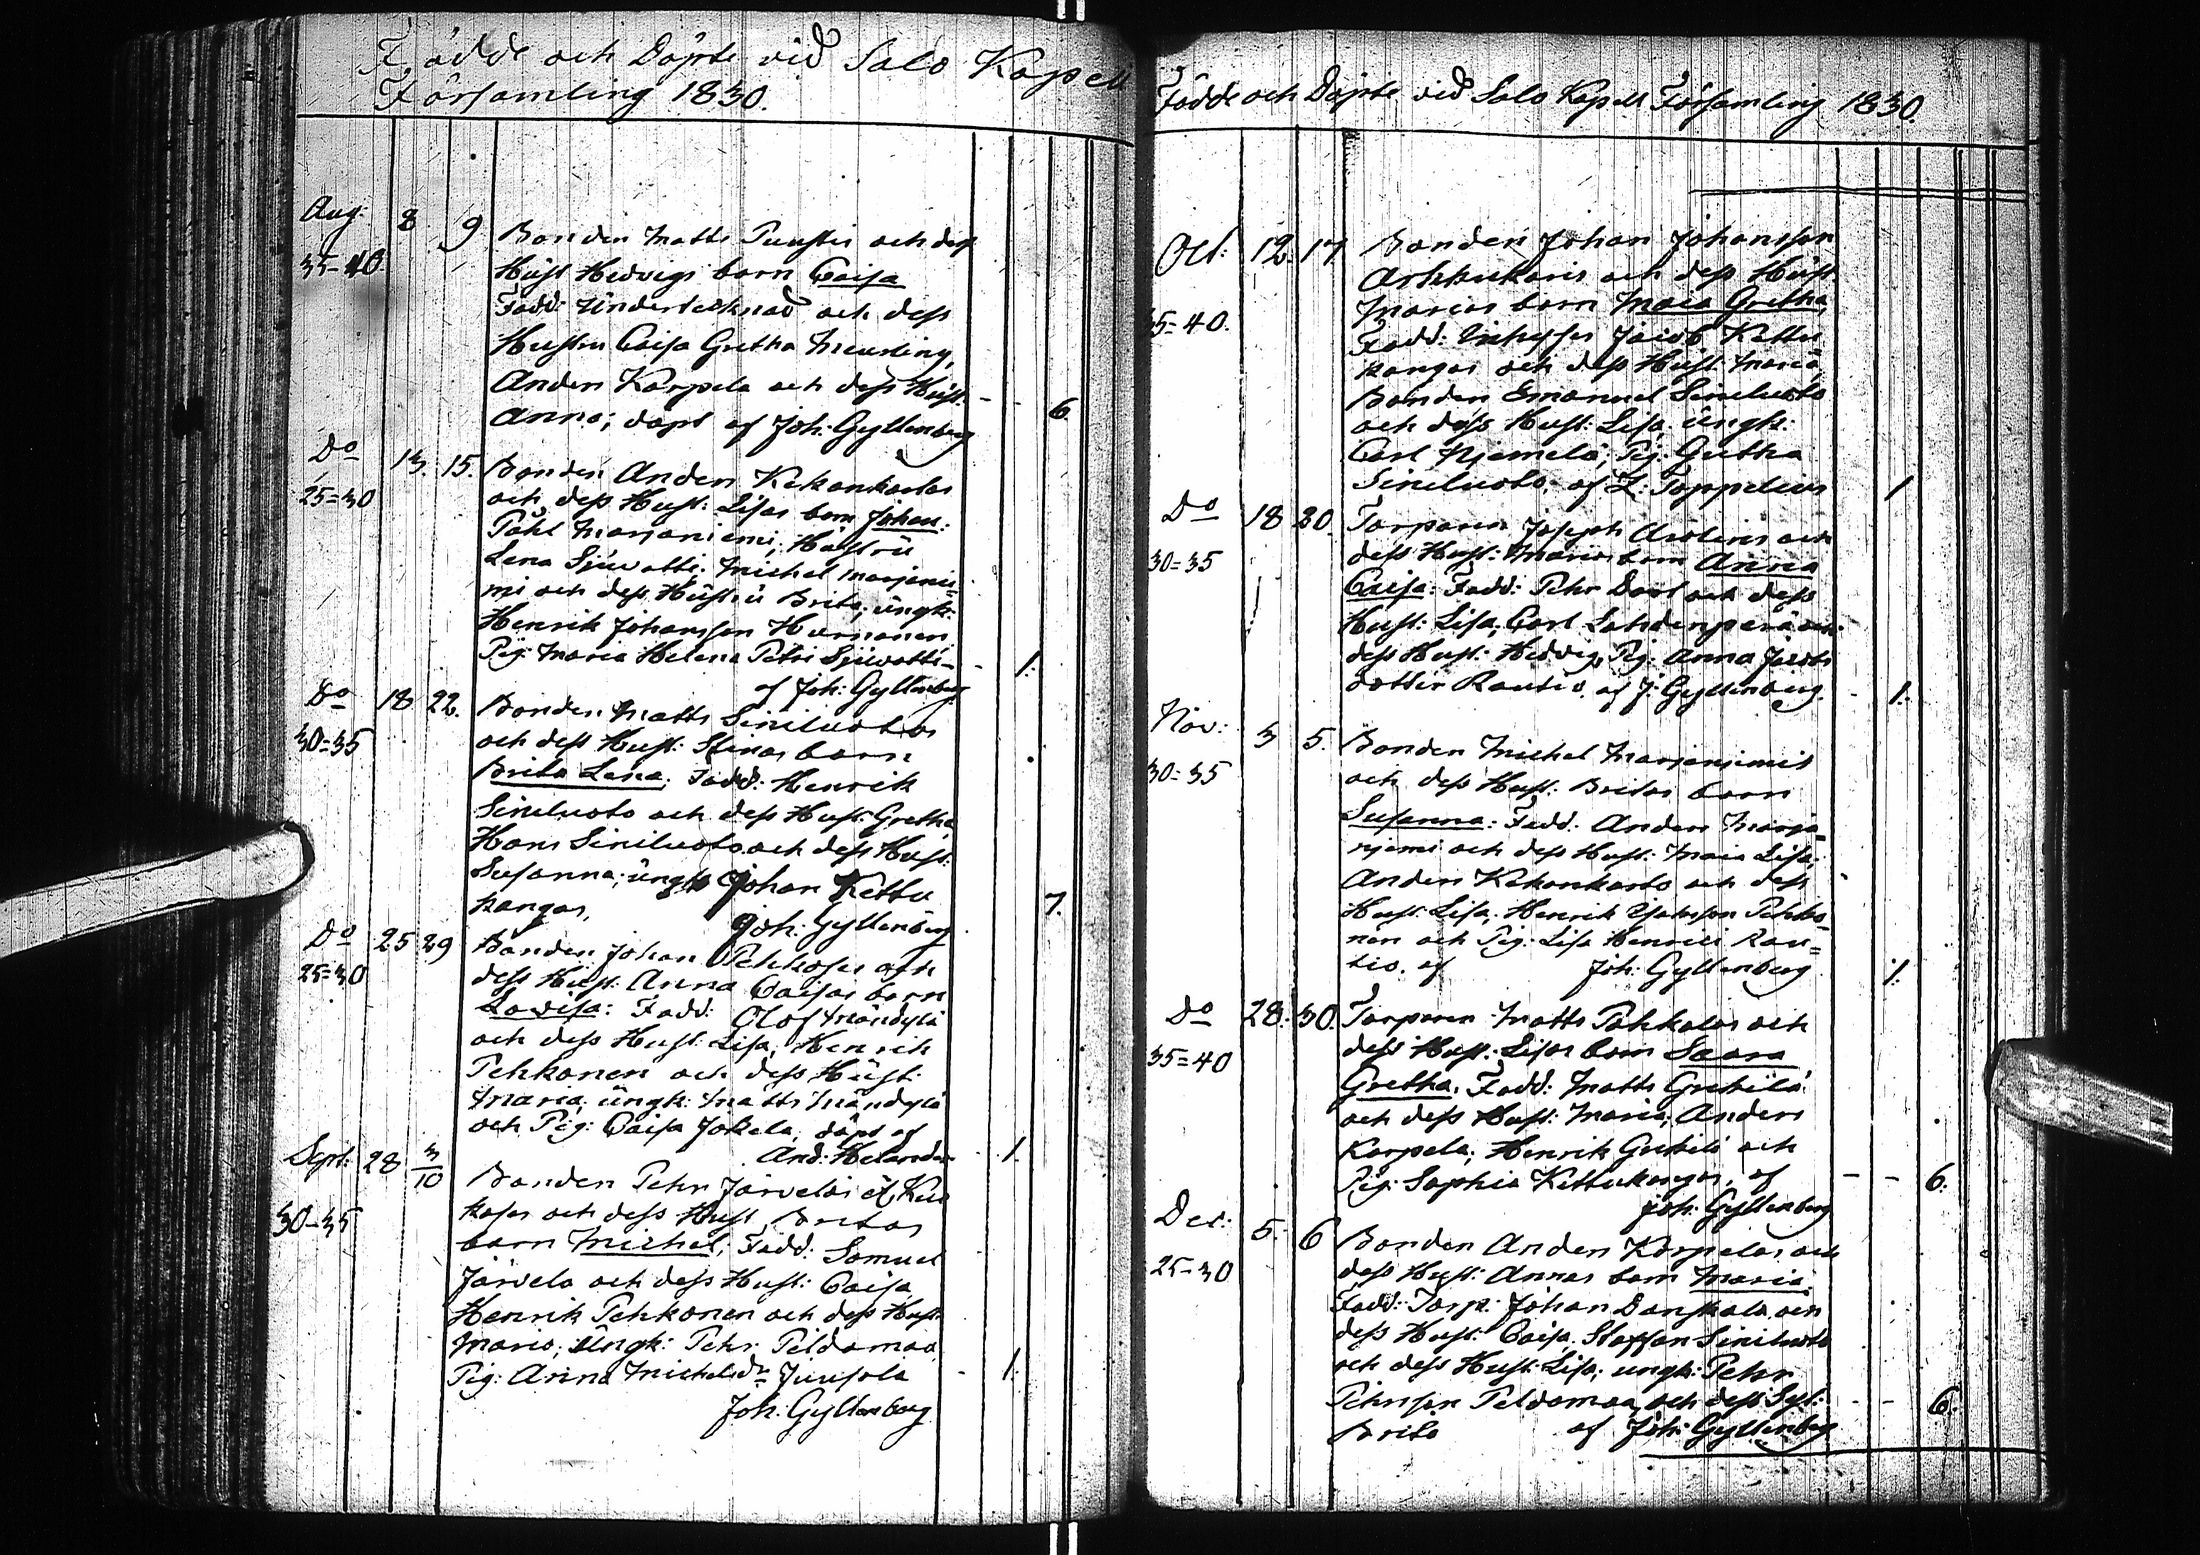 Födde och Döpte vid Salo Kapell
Församling 1830.
Aug: 8. 9 Bonden Matts Puustis och dess
35-40. Hust Hedvigs barn Caisa
Fadd: Undertecknad och dess
Hustru Caisa Gretha Meurling,
Anders Karpela och dess Hust.
Anna; döpt af Joh: Gyllenberg 6.
Do 13. 15. Bonden Anders Kekonkartos
25=30 och dess Hust: Lisas barn Johan:
Påhl Marjaniemi, Hustru
Lena Sjüvatti. Michel Marjanie=
mi och dess Hustru Brita, ungk:
Henrik Johansson Hurnanen
Pig: Maria Helena Petri Sjüvatti 1.
af Joh: Gyllenberg
Do 18 22. Bonden Matts Siniluotos
30=35 och dess Hust: Stinas barn
Brita Lena; Fadd: Henrik
Siniluoto och dess Hust: Gretha
Hans Siniluoto och dess Hust:
Susanna; ungk Johan Kettu
kangas, 7.
Joh: Gyllenberg
Do 25 29 Bonden Johan Pehkoses och
25=30 dess Hust: Anna Caisas barn
Lovisa: Fadd: Olof Mändylä
och dess Hust: Lisa, Henrik
Pehkonen och dess Hust:
Maria; ungk: Matts Mändylä
och Pig: Caisa Jokela, döpt af
And: Helander 1.
Sept: 28 3/10 Bonden Pehr Järveläs
30-35 och dess Hust Britas
barn Michel; Fadd: Samuel
Järvelä och dess Hust: Caisa
Henrik Pehkonen och dess Hust
Maria; Ungk: Pehr Peldomaa
Pig: Anna Michelsdr Juusola 1.
Joh: Gyllenberg
Födde och Döpte vid Salo Kapell Församling 1830.
Oct: 12. 17 Bonden Johan Johansson
Arkkukaris och dess Hust
35=40. Marias barn Maia Gretha
Fadd: Jacob Kettu
kangas och dess Hust: Maria,
Bonden Emanuel Siniluoto
och dess Hust: Lisa, ungk:
Carl Njemelä; Pig: Gretha
Siniluoto; af Z: Toppelius 1
Do 18 20. Torparen Joseph och
30=35 dess Hust: Marias barn Anna
Caisa: Fadd: Pehr och dess
Hust: Lisa, Carl Lahdenperä och
dess Hust: Hedvig, Pig: Anna Jacobs
dotter Rautio, af J: Gyllenberg. 1.
Nov: 3 5. Bonden Michel Marjaniemis
30=35 och dess Hust: Britas barn
Susanna: Fadd: Anders Marja=
njemi och dess Hust: Maia Lisa,
Anders Kekonkarto och dess
Hust: Lisa, Henrik Pehko=
nen och Pig: Lisa Henrici Rau=
tio. af Joh: Gyllenberg 1.
Do 28. 30. Torparen Matts Pahkalas och
35=40 dess Hust: Lisas barn Saara
Gretha, Fadd: Matts Grekilä
och dess Hust: Maria, Anders
Karpela, Henrik Grekilä och
Pig: Sophia Kettukangas, af 6.
Joh: Gyllenberg
Dec: 5. 6 Bonden Anders Korpelas och
25-30 dess Hust: Annas barn Maria
Fadd: Torp: Johan Danskala och
dess Hust: Caisa, Staffan Siniluoto
och dess Hust: Lisa; ungk: Pehr
Pehrsson Peldomaa och dess Syst: 6.
Brita af Joh: Gyllenberg